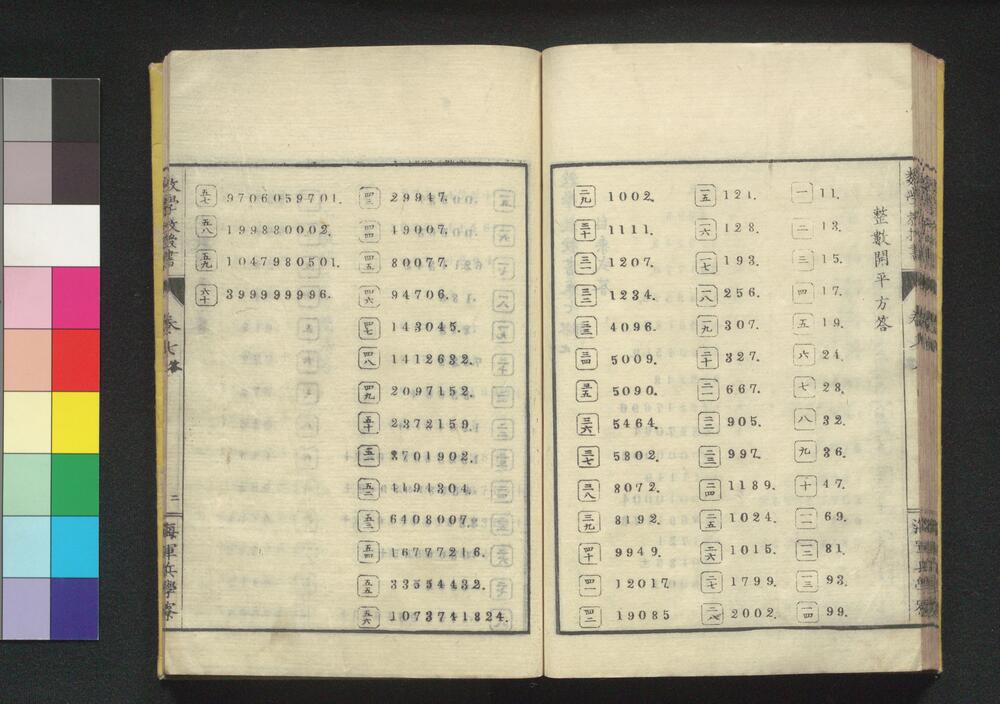 整數開平方答
一 11.
二 13.
三 15.
四 17.
五 19.
六 24.
七 28.
八 32.
九 36.
十 47.
一一 69.
一二 81.
一三 93.
一四 99.
一五 121.
一六 128.
一七 193.
一八 256.
一九 307.
二十 327.
二一 667.
二二 905.
二三 997.
二四 1189.
二五 1024.
二六 1015.
二七 1799.
二八 2002.
二九 1002.
三十 1111.
三一 1207.
三二 1234.
三三 4096.
三四 5009.
三五 5090.
三六 5464.
三七 5802.
三八 8072.
三九 8192.
四十 9949.
四一 12017
四二 19085
四三 29947.
四四 49007.
四五 80077.
四六 94706.
四七 143045.
四八 1412632.
四九 2097152.
五十 2372159.
五一 3701902.
五二 4194304.
五三 6408007.
五四 16777216.
五五 33554432.
五六 1073741824.
五七 9706059701.
五八 199880002.
五九 1047980501.
六十 399999996.
數學教授書
卷十七 答
二
海軍兵學寮